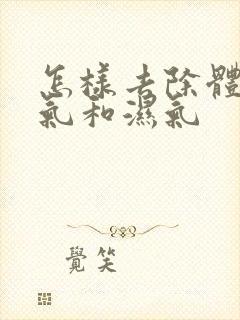 怎樣去除體
氣和濕氣
覺笑